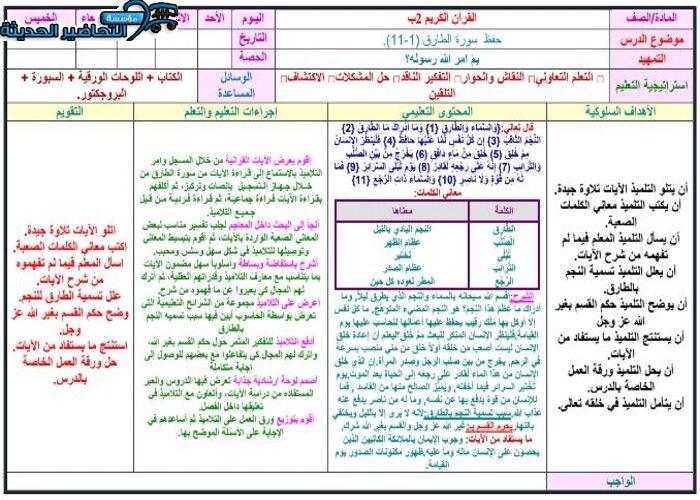 المادة/الصف
القرآن الكريم 2ب
اليوم
الأحد
الخميس
مؤسسة
التحاضير الحديثة
موضوع الدرس
حفظ سورة الطارق (1-11).
التاريخ
التمهيد
بم أمر الله رسوله؟
الحصة
استراتيجية التعليم
□ التعلم التعاوني□ النقاش والحوار□ التفكير الناقد□ حل المشكلات□ الاكتشاف□
التلقين
الوسائل
المساعدة
الكتاب + اللوحات الورقية + السبورة +
البروجكتور.
الأهداف السلوكية
المحتوى التعليمي
إجراءات التعليم والتعلم
التقويم
أن يتلو التلميذ الآيات تلاوة جيدة.
أن يكتب التلميذ معاني الكلمات
الصعبة.
أن يسأل التلميذ المعلم فيما لم
تفهمه من شرح الآيات.
أن يعلل التلميذ تسمية النجم
بالطارق.
أن يوضح التلميذ حكم القسم بغير
الله عز وجل
أن يستنتج التلميذ ما يستفاد من
الآيات.
أن يحل التلميذ ورقة العمل
الخاصة بالدرس.
أن يتأمل التلميذ في خلقه تعالى.
قال تعالى: {وَالسَّمَاءِ وَالطَّارِقِ {1} وَمَا أَدْرَاكَ مَا الطَّارِقُ {2}
النَّجْمُ الثَّاقِبُ {3} إِن كُلُّ نَفْسٍ لَّمَّا عَلَيْهَا حَافِظٌ {4} فَلْيَنظُرِ الْإِنسَانُ
مِمَّ خُلِقَ {5} خُلِقَ مِن مَّاء دَافِقٍ {6} يَخْرُجُ مِن بَيْنِ الصُّلْبِ
وَالتَّرَائِبِ {7} إِنَّهُ عَلَى رَجْعِهِ لَقَادِرٌ {8} يَوْمَ تُبْلَى السَّرَائِرُ {9} فَمَا
لَهُ مِن قُوَّةٍ وَلَا نَاصِرٍ {10} وَالسَّمَاء ذَاتِ الرَّجْعِ {11}
معاني الكلمات:
الكلمة
معناها
الطَّارِقِ
النجم البادي بالليل
الصُّلْبِ
عظام الظهر
تُبْلَى
تُختبر
التَّرَائِبِ
عظام الصدر
الرَّجْعِ
المطر لعوده كل حين
الشرح: أقسم الله سبحانه بالسماء والنجم الذي يطرق ليلاً، وما
أدراك ما عظم هذا النجم؟ هو النجم المضيء المتوهج. ما كل نفس
إلا أوكل بها ملك رقيب يحفظ عليها أعمالها لتحاسب عليها يوم
القيامة. فلينظر الإنسان المنكر للبعث مم خلق؟ ليعلم أن إعادة خلق
الإنسان ليست أصعب من خلقه أولا خلق من مني منصب بسرعة
في الرحم، يخرج من بين صلب الرجل وصدر المرأة. إن الذي خلق
الإنسان من هذا الماء لقادر على رجعه إلى الحياة بعد الموت. يوم
تُختبر السرائر فيما أخفته، ويُميَّز الصالح منها من الفاسد , فما
للإنسان من قوة يدفع بها عن نفسه، وما له من ناصر يدفع عنه
عذاب الله. سبب تسمية النجم بالطارق: لأنه لا يرى إلا بالليل ويختفي
بالنهار. يحرم القسم ب: غير الله عز وجل والقسم بغير الله شرك.
ما يستفاد من الآيات: وجوب الإيمان بالملائكة الكاتبين الذين
يحصون على الإنسان ماله وما عليه. ظهور مكنونات الصدور يوم
القيامة.
أقوم بعرض الآيات القرآنية من خلال المسجل وآمر
التلاميذ بالاستماع إلى قراءة الآيات من سورة الطارق من
خلال جهاز التسجيل بإنصات وتركيز، ثم أكلفهم
بقراءة الآيات قراءة جماعية، ثم قراءة فردية من قبل
جميع التلاميذ.
ألجأ إلى البحث داخل المعاجم لجلب تفسير مناسب لبعض
المعاني الصعبة الواردة بالآيات، ثم أقوم بتبسيط المعاني
وتوصيلها للتلاميذ في شكل سهل وسلس ومحبب.
أشرح باستفاضة وبساطة وأسلوب سهل مضمون الآيات
بما يتناسب مع معارف التلاميذ وقدراتهم العقلية، ثم أترك
لهم المجال كي يعبروا عن ما فهموه من شرح.
أعرض على التلاميذ مجموعة من الشرائح التعليمية التي
تعرض بواسطة الحاسوب أبين فيها سبب تسمية النجم
بالطارق
أدفع التلاميذ للتفكير المثمر حول حكم القسم بغير الله،
وأترك لهم المجال كي يتفاعلوا مع بعضهم للوصول إلى
إجابة متكاملة
أصمم لوحة إرشادية جذابة تعرض فيها الدروس والعبر
المستفاده من دراسة الآيات، وأتعاون مع التلاميذ في
تعليقها داخل الفصل.
أقوم بتوزيع ورق العمل على التلاميذ ثم أساعدهم في
الإجابة على الأسئلة الموضح بها.
اتلو الآيات تلاوة جيدة.
اكتب معاني الكلمات الصعبة.
اسأل المعلم فيما لم تفهموه
من شرح الآيات.
علل تسمية الطارق للنجم.
وضح حكم القسم بغير الله عز
وجل.
استنتج ما يستفاد من الآيات.
حل ورقة العمل الخاصة
بالدرس.
الواجب